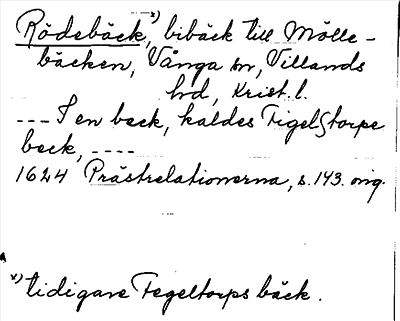 Rödebäck, x) bibäck till Mölle-
bäcken, Vånga sn, Villands
hd, Krist. l.
--- I en beck, kaldes Tigelstorpe
beck, ----
1624 Prästrelationerna, s. 143. orig.
x) tidigare Tegeltorps bäck.